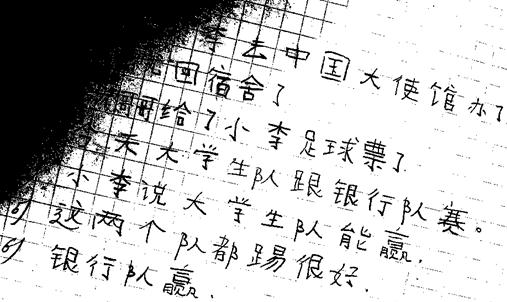 李去中国大使馆办了
回宿舍了
给了小李足球票了
天大学生队跟银行队赛。
小李说大学生队能赢.
5) 这两个队都踢很好.
6) 银行队赢.